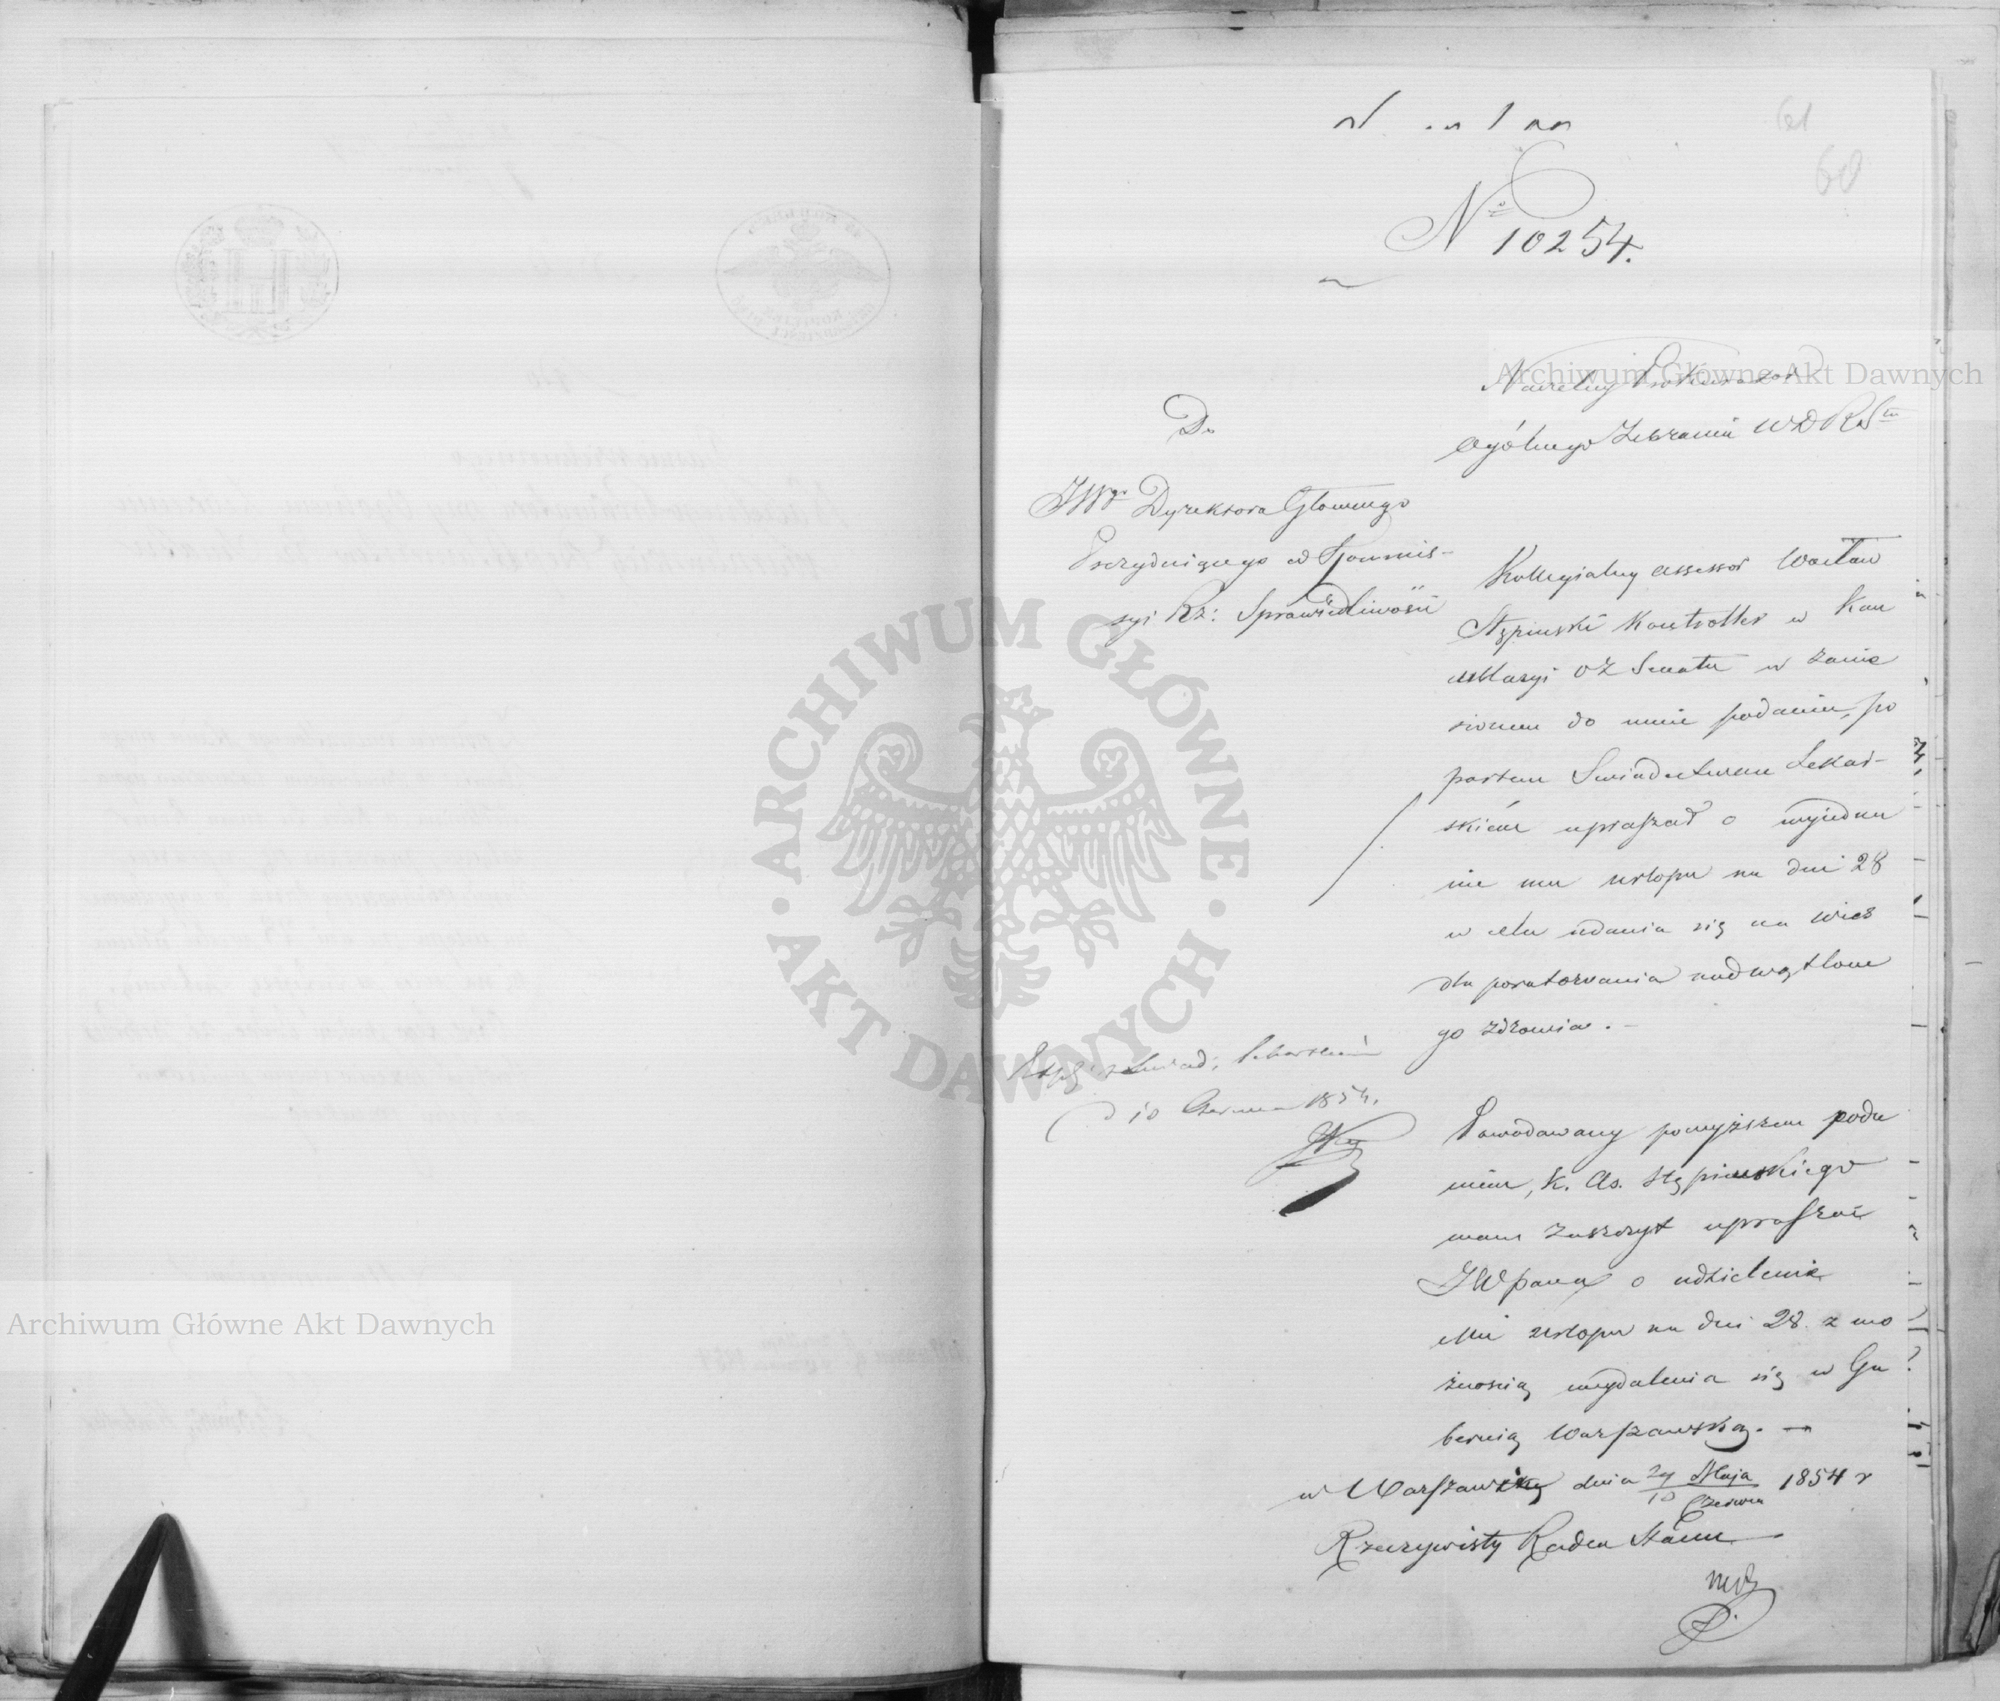 61
60
No
10254.
Naczelny Prokurator
Ogólnego Zebrania WDRS
Do
JWgo Dyrektora Głównego
Prezydującego w Kommis-
syi Rz: Sprawiedliwości
Kollegialny Assessor Wacław
Stępinski Kontroller w Kan
cellaryi OZ Senatu w zanie
sionem do mnie podaniu, po
partem Swiadectwem Lekar-
skiem upraszał o wyjedna
nie mu urlopu na dni 28
w celu udania się na wieś
dla poratowania nadwątlone
go zdrowia. -
Expl: z Swiad: Lekarskiem
d 10 Czerwca 1854.
Powodowany powyższem poda
niem, K. As. Stępinskiego
mam zaszczyt upraszać
JWPana o udzielenie
Mu urlopu na dni 28. z mo
żnością wydalenia się w Gu
bernią Warszawską. —
w Warszawie dnia 29 Maja / 10 Czerwca 1854 r
Rzeczywisty Radca Stanu
Archiwum Główne Akt Dawnych
Archiwum Główne Akt Dawnych
ARCHIWUM GŁÓWNE · AKT DAWNYCH ·